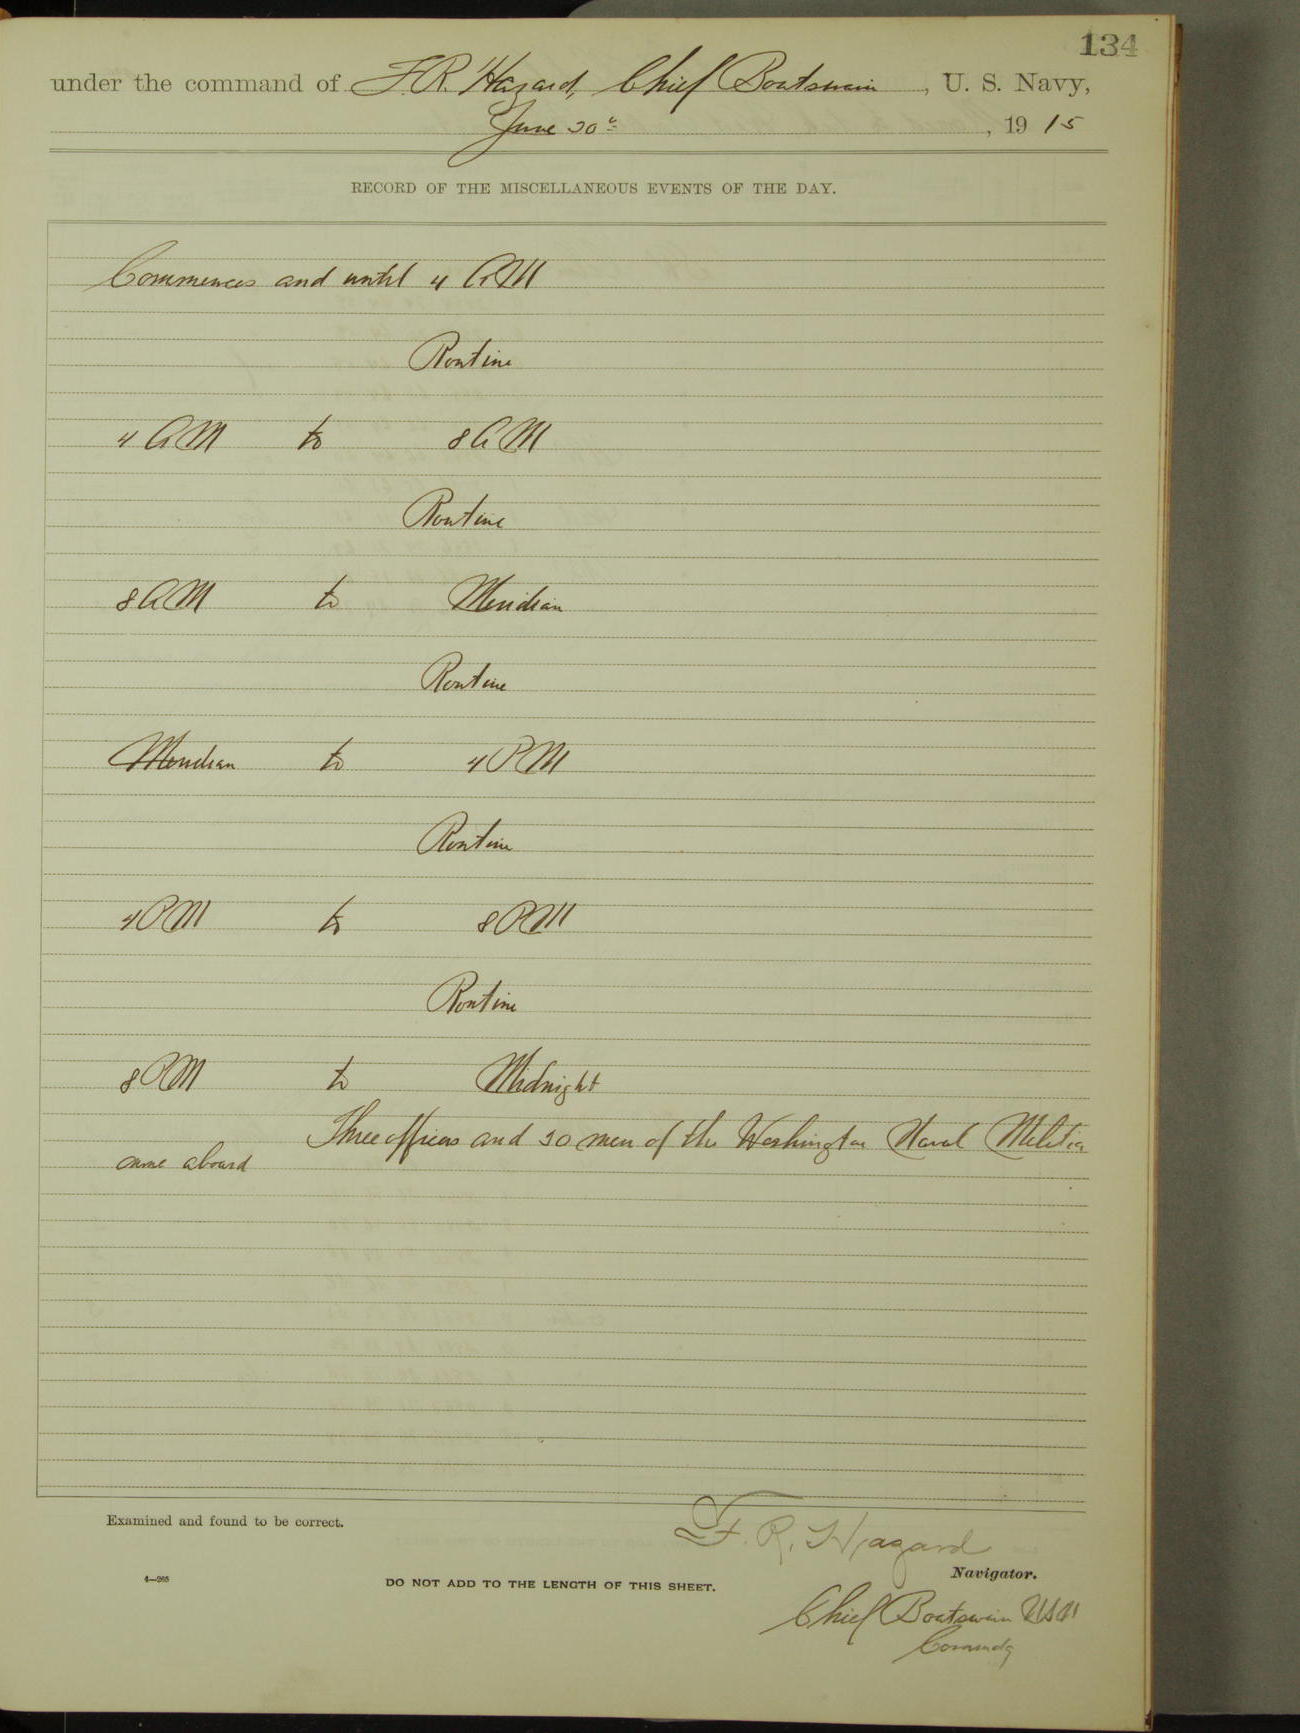 134
under the command of F. R. Hazard, Chief Boatswain, U. S. Navy,
June 30th, 1915
RECORD OF THE MISCELLANEOUS EVENTS OF THE DAY.
Commences and until 4 AM
Routine
4 AM to 8 AM
Routine
8 AM to Meridian
Routine
Meridian to 4 PM
Routine
4 PM to 8 PM
Routine
8 PM to Midnight
Three officers and 30 men of the Washington Naval Militia
came aboard
Examined and found to be correct.
F. R. Hazard
Navigator.
4—265
DO NOT ADD TO THE LENGTH OF THIS SHEET.
Chief Boatswain USN
Commdg